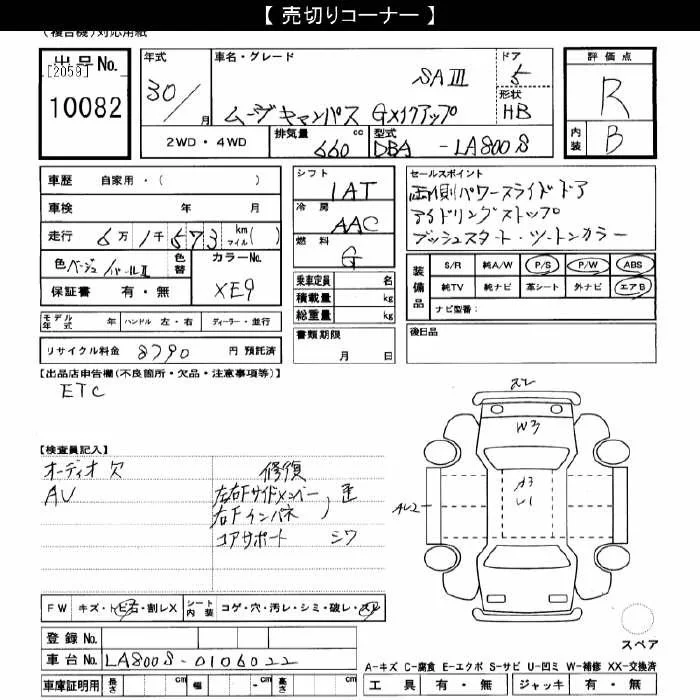 【 売切りコーナー 】
(複合機)対応用紙
出品No.
[2059]
10082
年式
30/ 月
車名・グレード
SAⅢ
ムーヴキャンバス Gメイクアップ
ドア
5
形状
HB
2WD・4WD
排気量 660 cc
型式 DBA-LA800S
評価点
R
内装 B
車歴 自家用・( )
車検 年 月
走行 6万1千573 km マイル( )
色 ベージュ/パールⅡ
色替
カラーNo.
XE9
保証書 有・無
モデル年式 年 ハンドル 左・右 ディーラー・並行
リサイクル料金 8790 円 預託済
シフト
IAT
冷房
AAC
燃料
G
乗車定員 名
積載量 kg
総重量 kg
書類期限
月 日
セールスポイント
両側パワースライドドア
アイドリングストップ
プッシュスタート・ツートンカラー
装備品
S/R 純A/W P/S P/W ABS
純TV 純ナビ 革シート 外ナビ エアB
ナビ型番:
後日品
【出品店申告欄(不良箇所・欠品・注意事項等)】
ETC
【検査員記入】
オーディオ欠
AU
修復
左右Fサイドメンバー
右Fインパネ
コアサポート シワ
W3
A3
U1
AU2
FW キズ・トビ石・割レX
シート内装 コゲ・穴・汚レ・シミ・破レ・スレ
登録No.
車台No. LA800S-0106022
車庫証明用 長さ cm 幅 cm 高さ cm
スペア
A-キズ C-腐食 E-エクボ S-サビ U-凹ミ W-補修 XX-交換済
工具 有・無 ジャッキ 有・無